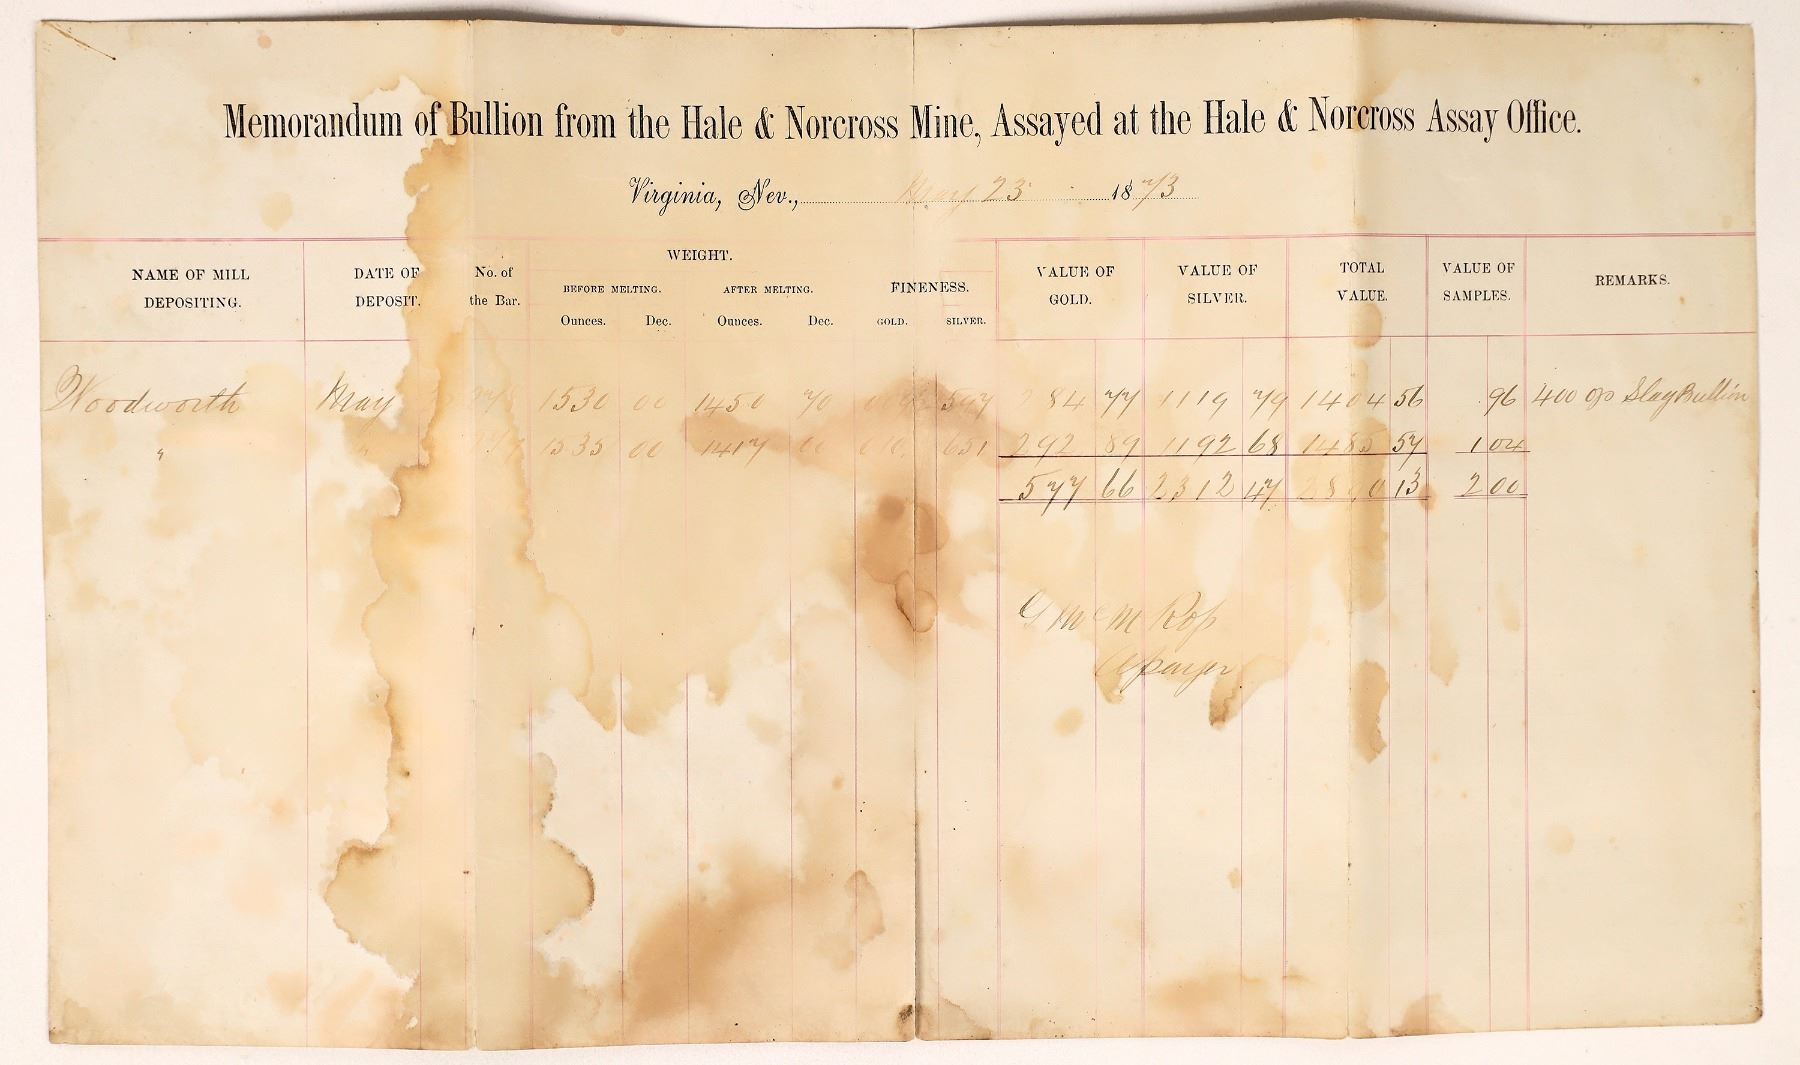 Memorandum of Bullion from the Hale & Norcross Mine, Assayed at the Hale & Norcross Assay Office.
Virginia, Nev., May 23 1873
NAME OF MILL DEPOSITING.
DATE OF DEPOSIT.
No. of the Bar.
WEIGHT.
BEFORE MELTING.
Ounces. Dec.
AFTER MELTING.
Ounces. Dec.
FINENESS.
GOLD. SILVER.
VALUE OF GOLD.
VALUE OF SILVER.
TOTAL VALUE.
VALUE OF SAMPLES.
REMARKS.
Woodworth May 1530 00 1450 70 597 284 77 1119 79 1404 56 96 400 ozs Slag Bullion
" " 1535 00 1417 00 651 292 89 1192 68 1485 57 1 04
577 66 2312 47 2890 13 2 00
Assayer